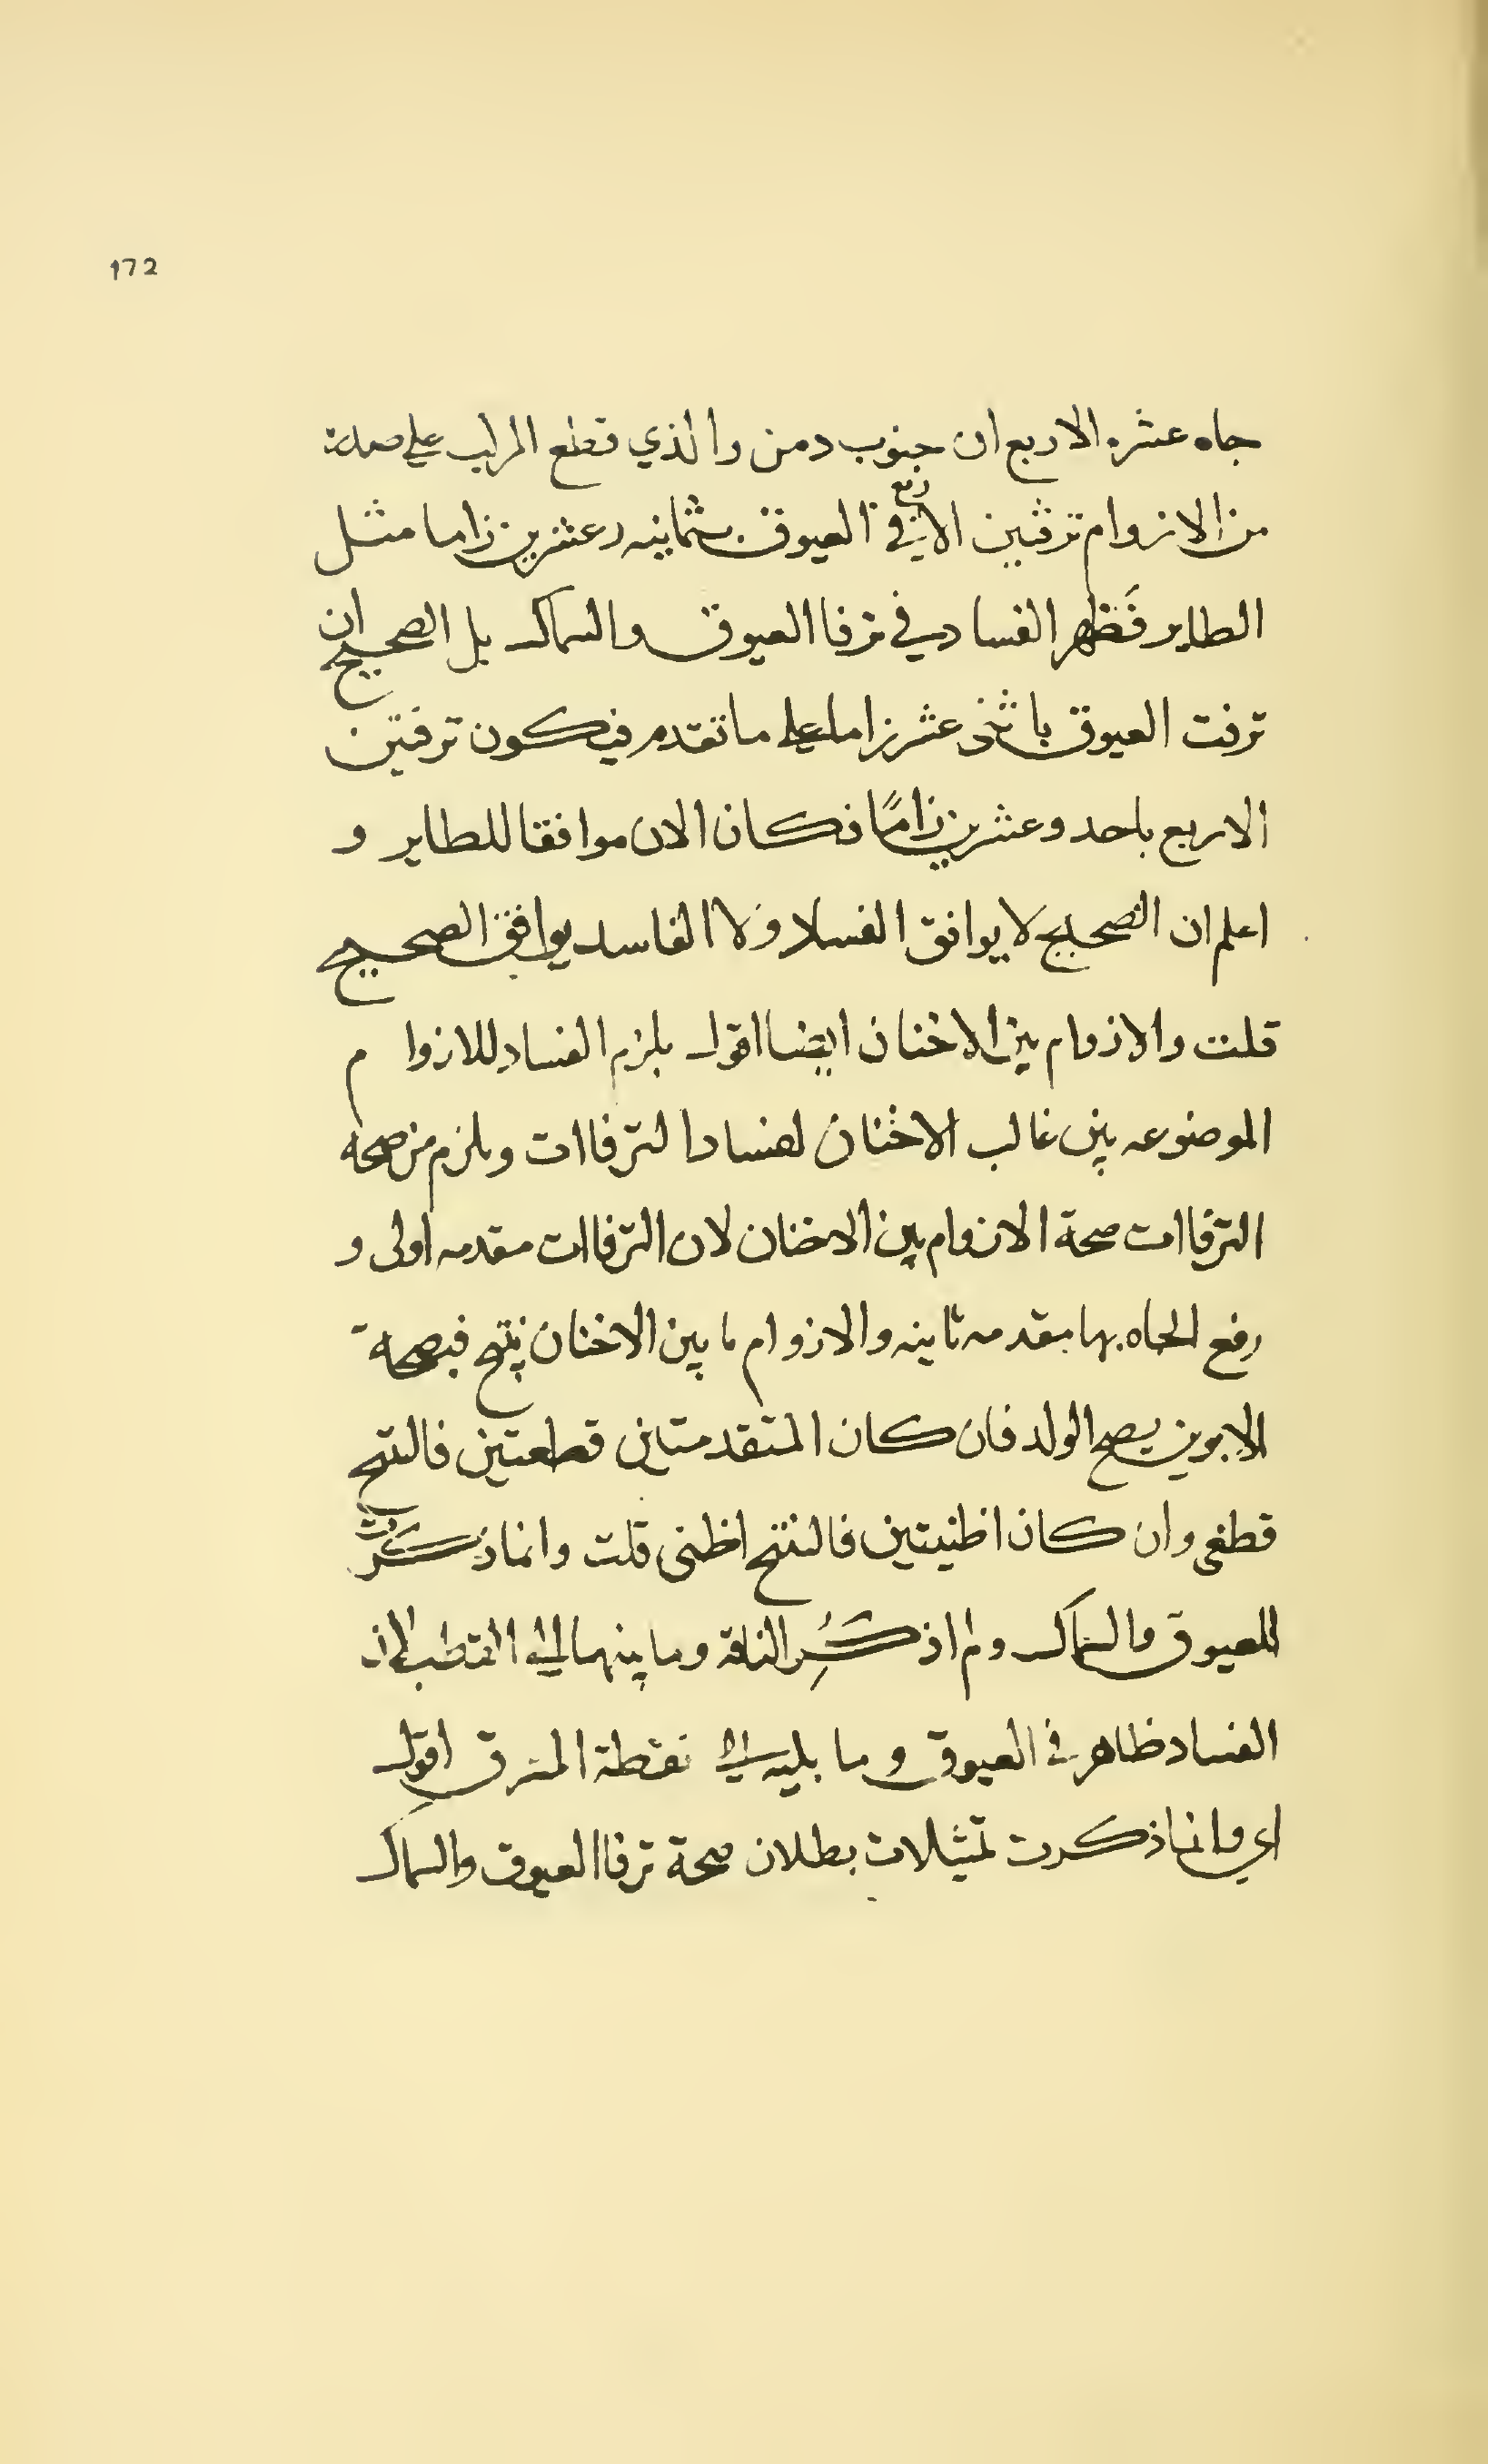 172
جاه عشره الاربع ان جنوب دمن والذي قطع المركب على
من الازوام ترفتين الاربع في العيوق بثمانيه وعشرين زاما مثل
الطاير فَظهر الفساد في ترفا العيوق والسماك بل الصحيح ان
ترفت العيوق باثنى عشر زاما على ما تقدم فيكون ترفتين
الاربع باحد وعشرين زامًا فكان الان موافقا للطاير و
اعلم ان الصحيح لا يوافق الفساد ولا الفاسد يوافق الصحيح
قلت والازوام بين الاخنان ايضا اقول يلزم الفساد للازوا م
الموضوعه بين غالب الاخنان لفساد الترفاات ويلزم من صحة
الترفاات صحة الازوام بين الاخنان لان الترفاات مقدمه اولى و
رفع الجاه بها مقدمه ثانيه والازوام ما بين الاخنان ينتج فبصحة
الابوين يصح الولد فان كان المتقدمتان قطعتين فالنتج
قطعى وان كان اظنيتين فالنتج اظنى قلت وانما ذكَرتُ
للعيوق والسماك ولم اذكُرِ الناقة وما بينهما الى القطب لان
الفساد ظاهر في العيوق وما يليه الى نقطة المشرق اقول
اي وانما ذكرت تمثيلات بطلان صحة ترفا العيوق والسماك